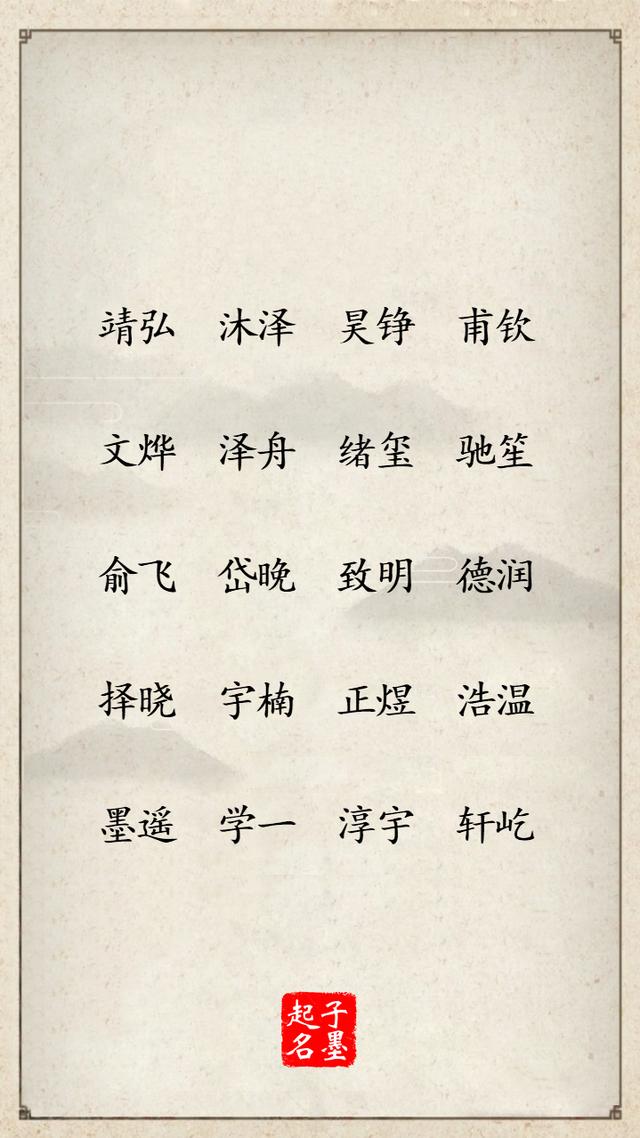 靖弘 沐泽 昊铮 甫钦
文烨 泽舟 绪玺 驰笙
俞飞 岱晚 致明 德润
择晓 宇楠 正煜 浩温
墨遥 学一 淳宇 轩屹
子墨
起名